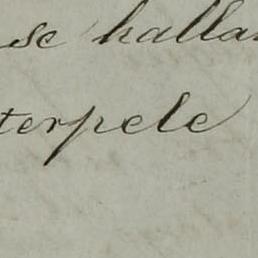 se halla
terpele